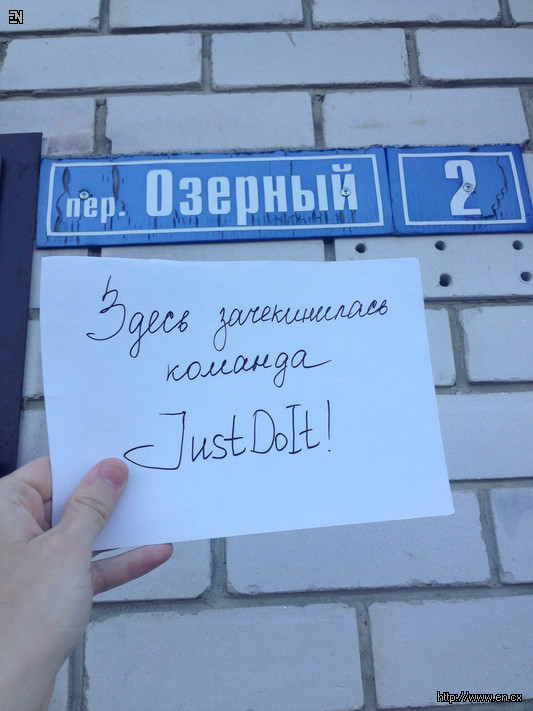 EN
пер. Озерный 2
Здесь зачекинилась
команда
JustDoIt!
http://www.en.cx